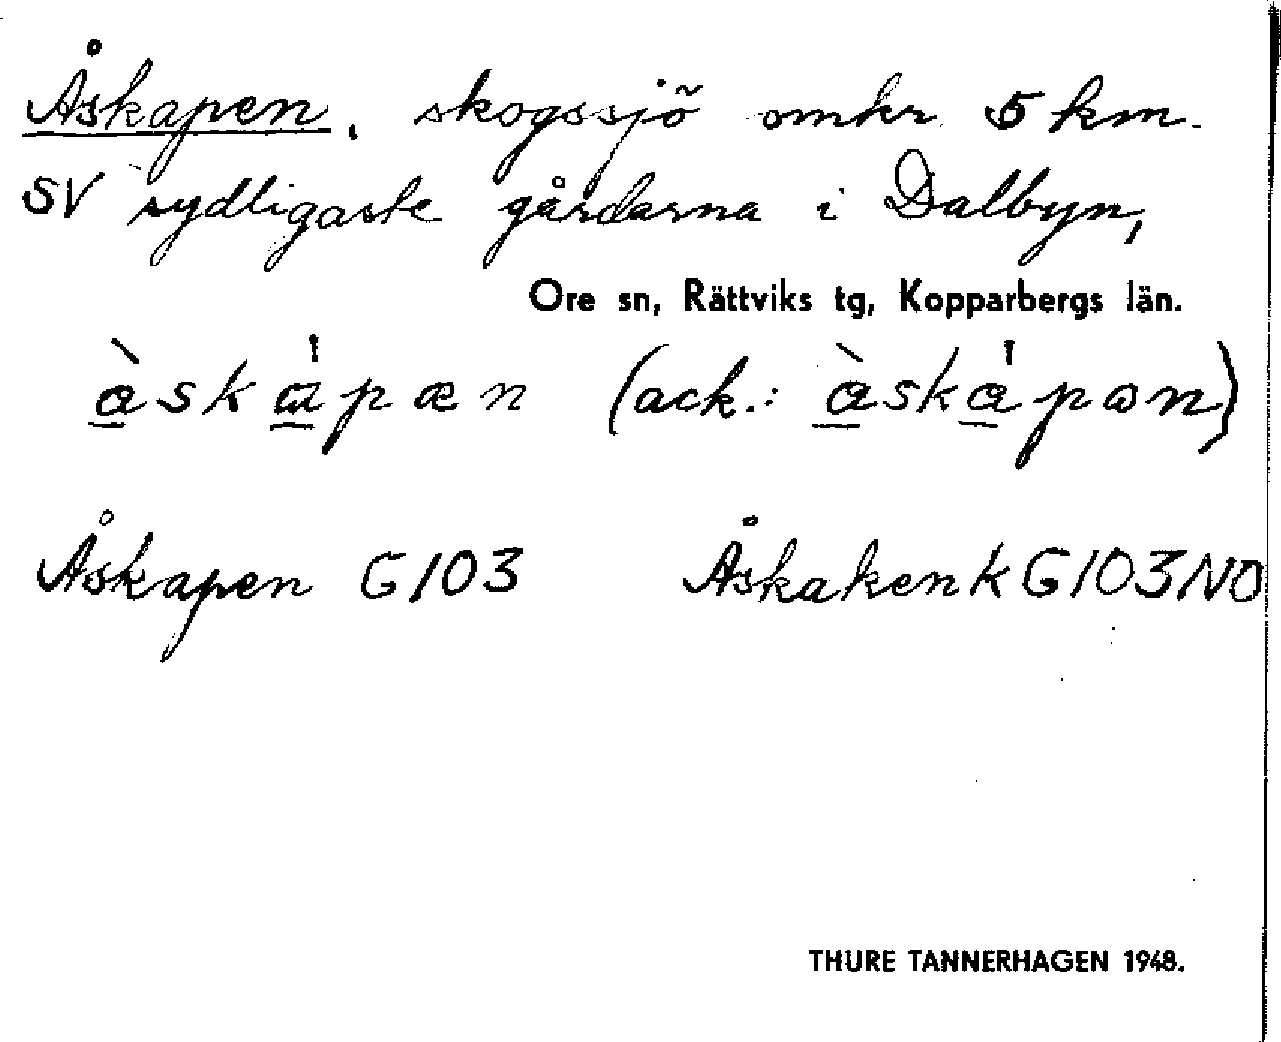 Åskapen, skogssjö omkr 5 km.
SV sydligaste gårdarna i Dalbyn,
Ore sn, Rättviks tg, Kopparbergs län.
à̲ska̲̍pæn (ack.: à̲ska̲̍pən)
Åskapen G103 Åskaken K G103NO
THURE TANNERHAGEN 1948.